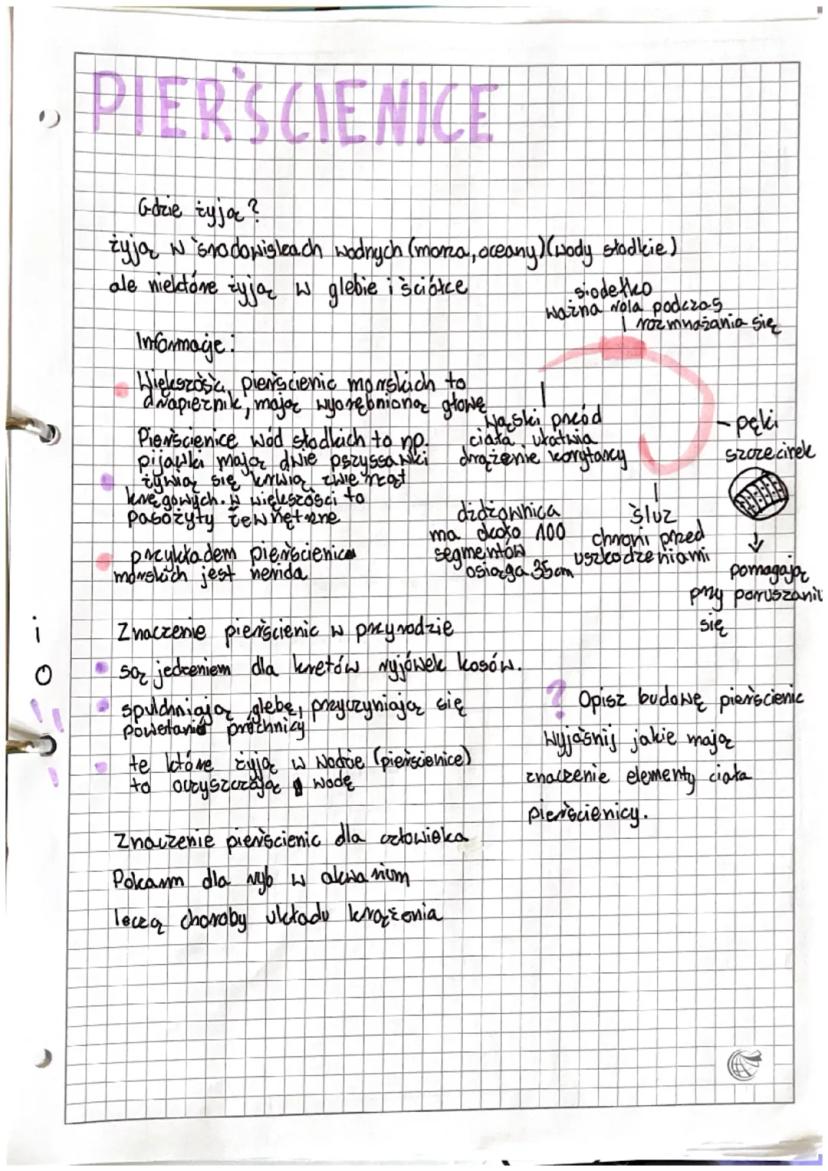 PIERŚCIENICE
Gdzie żyją?
żyją w środowiskach wodnych (morza, oceany) (wody słodkie)
ale niektóre żyją w glebie i ściółce
siodełko
ważna rola podczas
rozmnażania się
Informacje:
Większość pierścienic morskich to
drapieżnik, mają wyorębnioną głowę
Pierścienice wód słodkich to np.
pijawki mają dwie pszyssawki
żywią się krwią zwierząt
kręgowych. w większości to
pasożyty zewnętrzne
przykładem pierścienic
morskich jest nerida
wąski przód
ciała ułatwia
drążenie korytarzy
pęki
szczecinek
dżdżownica
ma około 100
segmentów
osiąga 35cm
śluz
chroni przed
uszkodzeniami
pomagają
przy poruszaniu
się
Znaczenie pierścienic w przyrodzie
są jedzeniem dla kretów ryjówek kosów.
spulchniają glebę, przyczyniają się
powstania próchnicy
te które żyją w wodzie (pierścienice)
to oczyszczają wodę
? Opisz budowę pierścienic
wyjaśnij jakie mają
znaczenie elementy ciała
pierścienicy.
Znaczenie pierścienic dla człowieka
Pokarm dla ryb w akwarium
leczą choroby układu krążenia